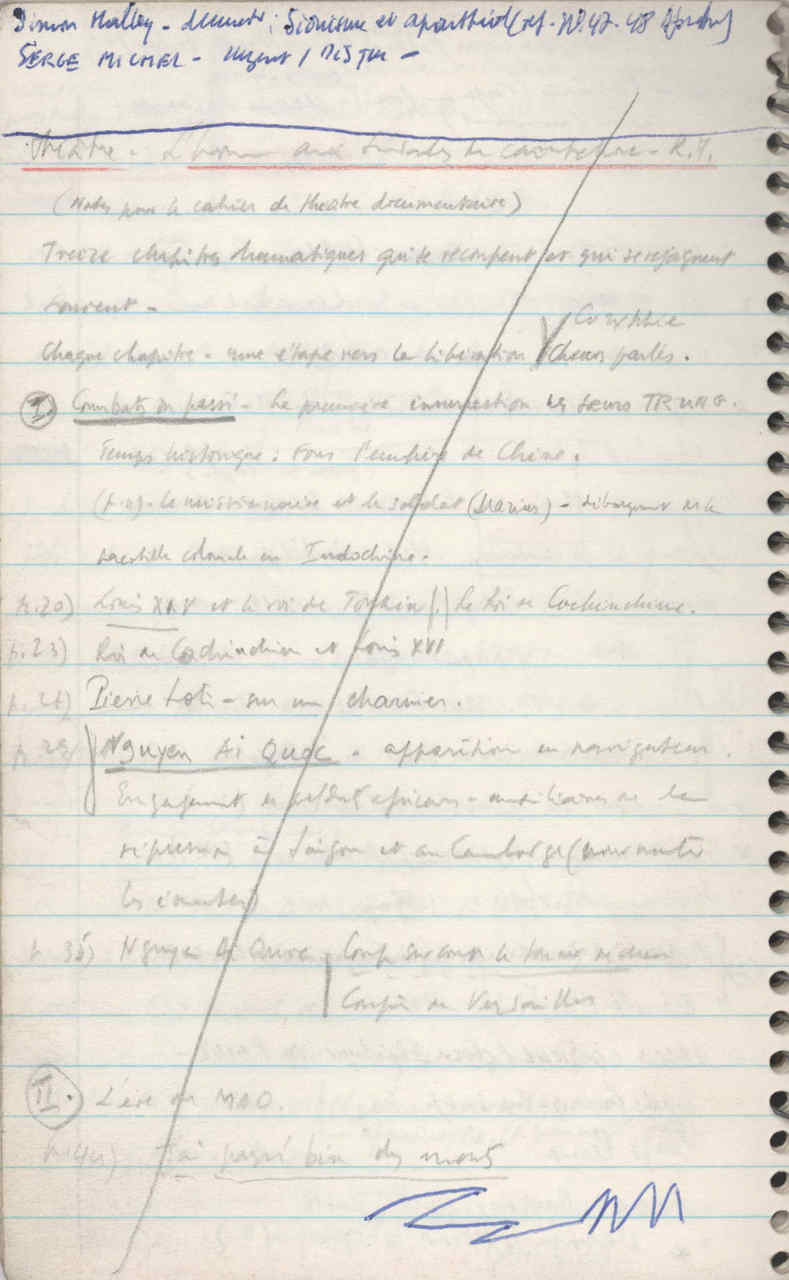 Simon Malley - : Sionisme et apartheid (ref. N° 47-48 )
SERGE MICHEL - Urgent /
Théâtre - L'homme aux sandales de caoutchouc - K.Y.
(Notes pour le cahier de théâtre documentaire)
Treize chapitres dramatiques qui se recoupent et qui se rejoignent
souvent -
Coryphée
Chaque chapitre - une étape vers la libération / Choeurs parlés.
I Combats du passé - La première insurrection des soeurs TRUNG.
Temps historique : sous l'empire de Chine.
Le missionnaire et le soldat (Marius) - débarquent
coloniale en Indochine.
p. 20) Louis XIV et le roi de Tonkin / Le Roi de Cochinchine.
p. 23) Roi de Cochinchine et Louis XVI
Pierre Loti - sur un charnier.
Nguyen Ai Quoc - apparition en navigateur.
Engagement de soldats africains - auxiliaires de la
répression à Saigon et au Cambodge (pour mater
les émeutes)
Nguyen Ai Quoc -
de Versailles
II. L'ère de MAO.
J'ai passé bien des monts